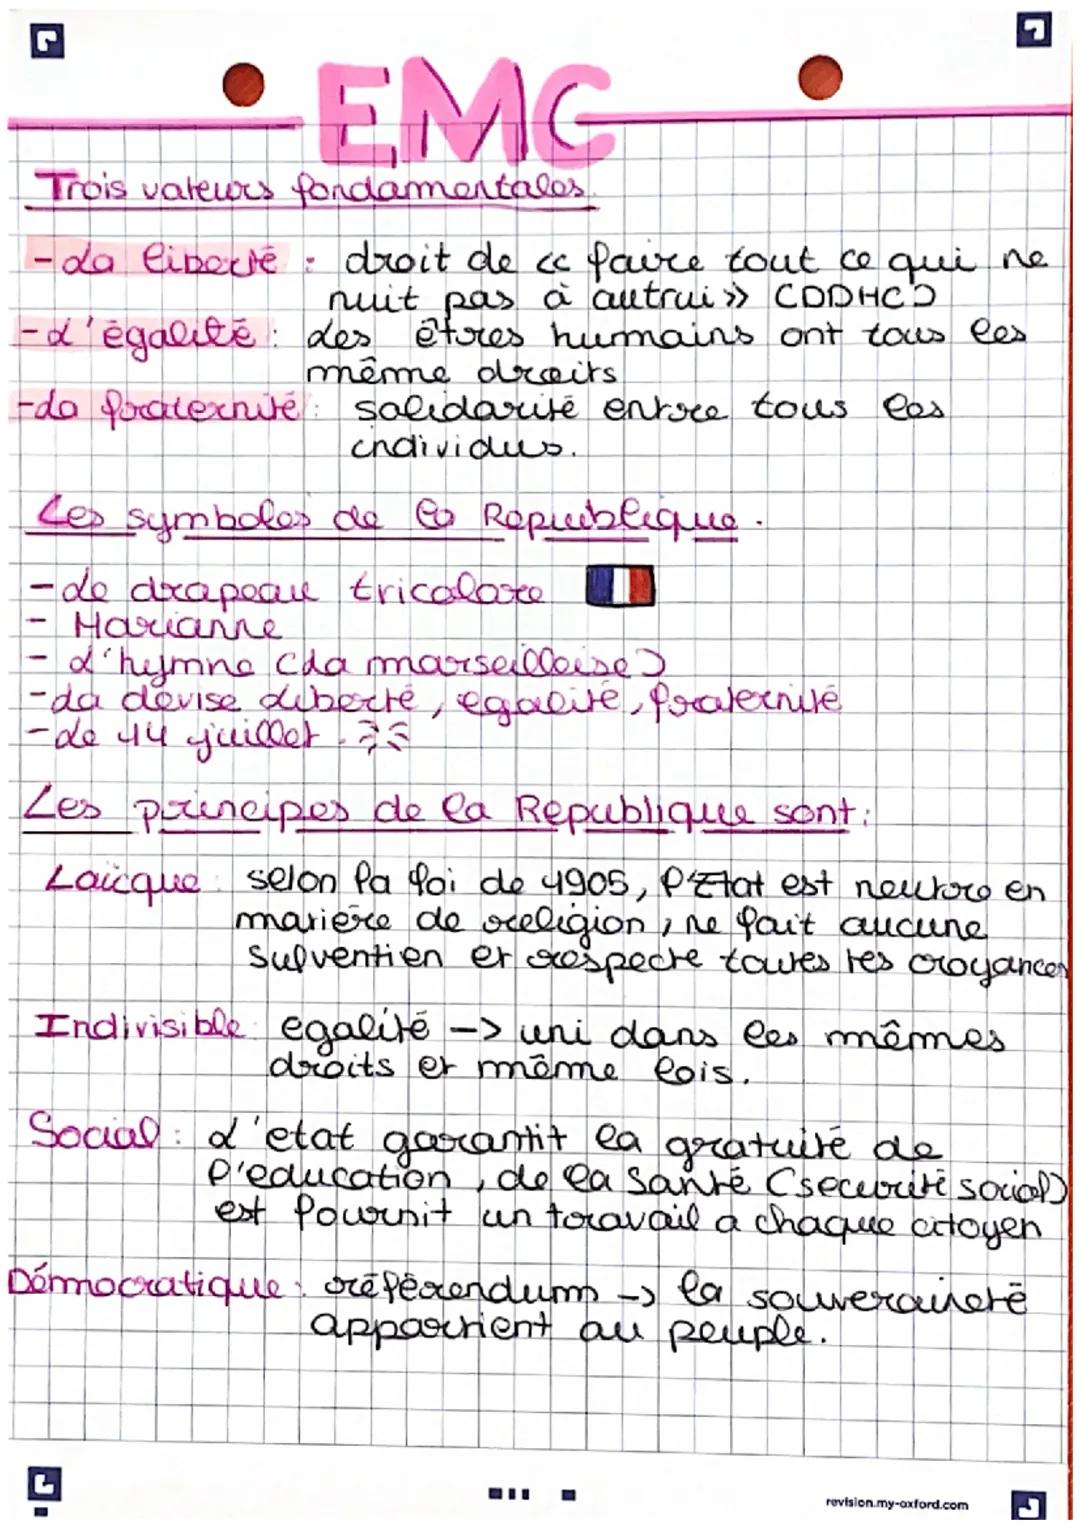 EMC
Trois valeurs fondamentales.
- La liberté : droit de << faire tout ce qui ne
nuit pas à autrui >> (DDHC)
- L'égalité : des êtres humains ont tous les
même droits
- La fraternité : solidarité entre tous les
individus.
Les symboles de la Republique.
- Le drapeau tricolore
- Marianne
- L'hymne (La marseillaise)
- La devise Liberté, egalité, fraternité
- Le 14 juillet.
Les principes de la Republique sont:
Laïcque : selon la loi de 1905, l'Etat est neutre en
matière de religion, ne fait aucune
sulvention et respecte toutes les croyances
Indivisible : egalité -> uni dans les mêmes
droits et même lois.
Social : L'etat garantit la gratuité de
l'education, de la santé (securité social)
est fournit un travail a chaque citoyen
Démocratique : référendum -> la souveraineté
appartient au peuple.
revision.my-oxford.com